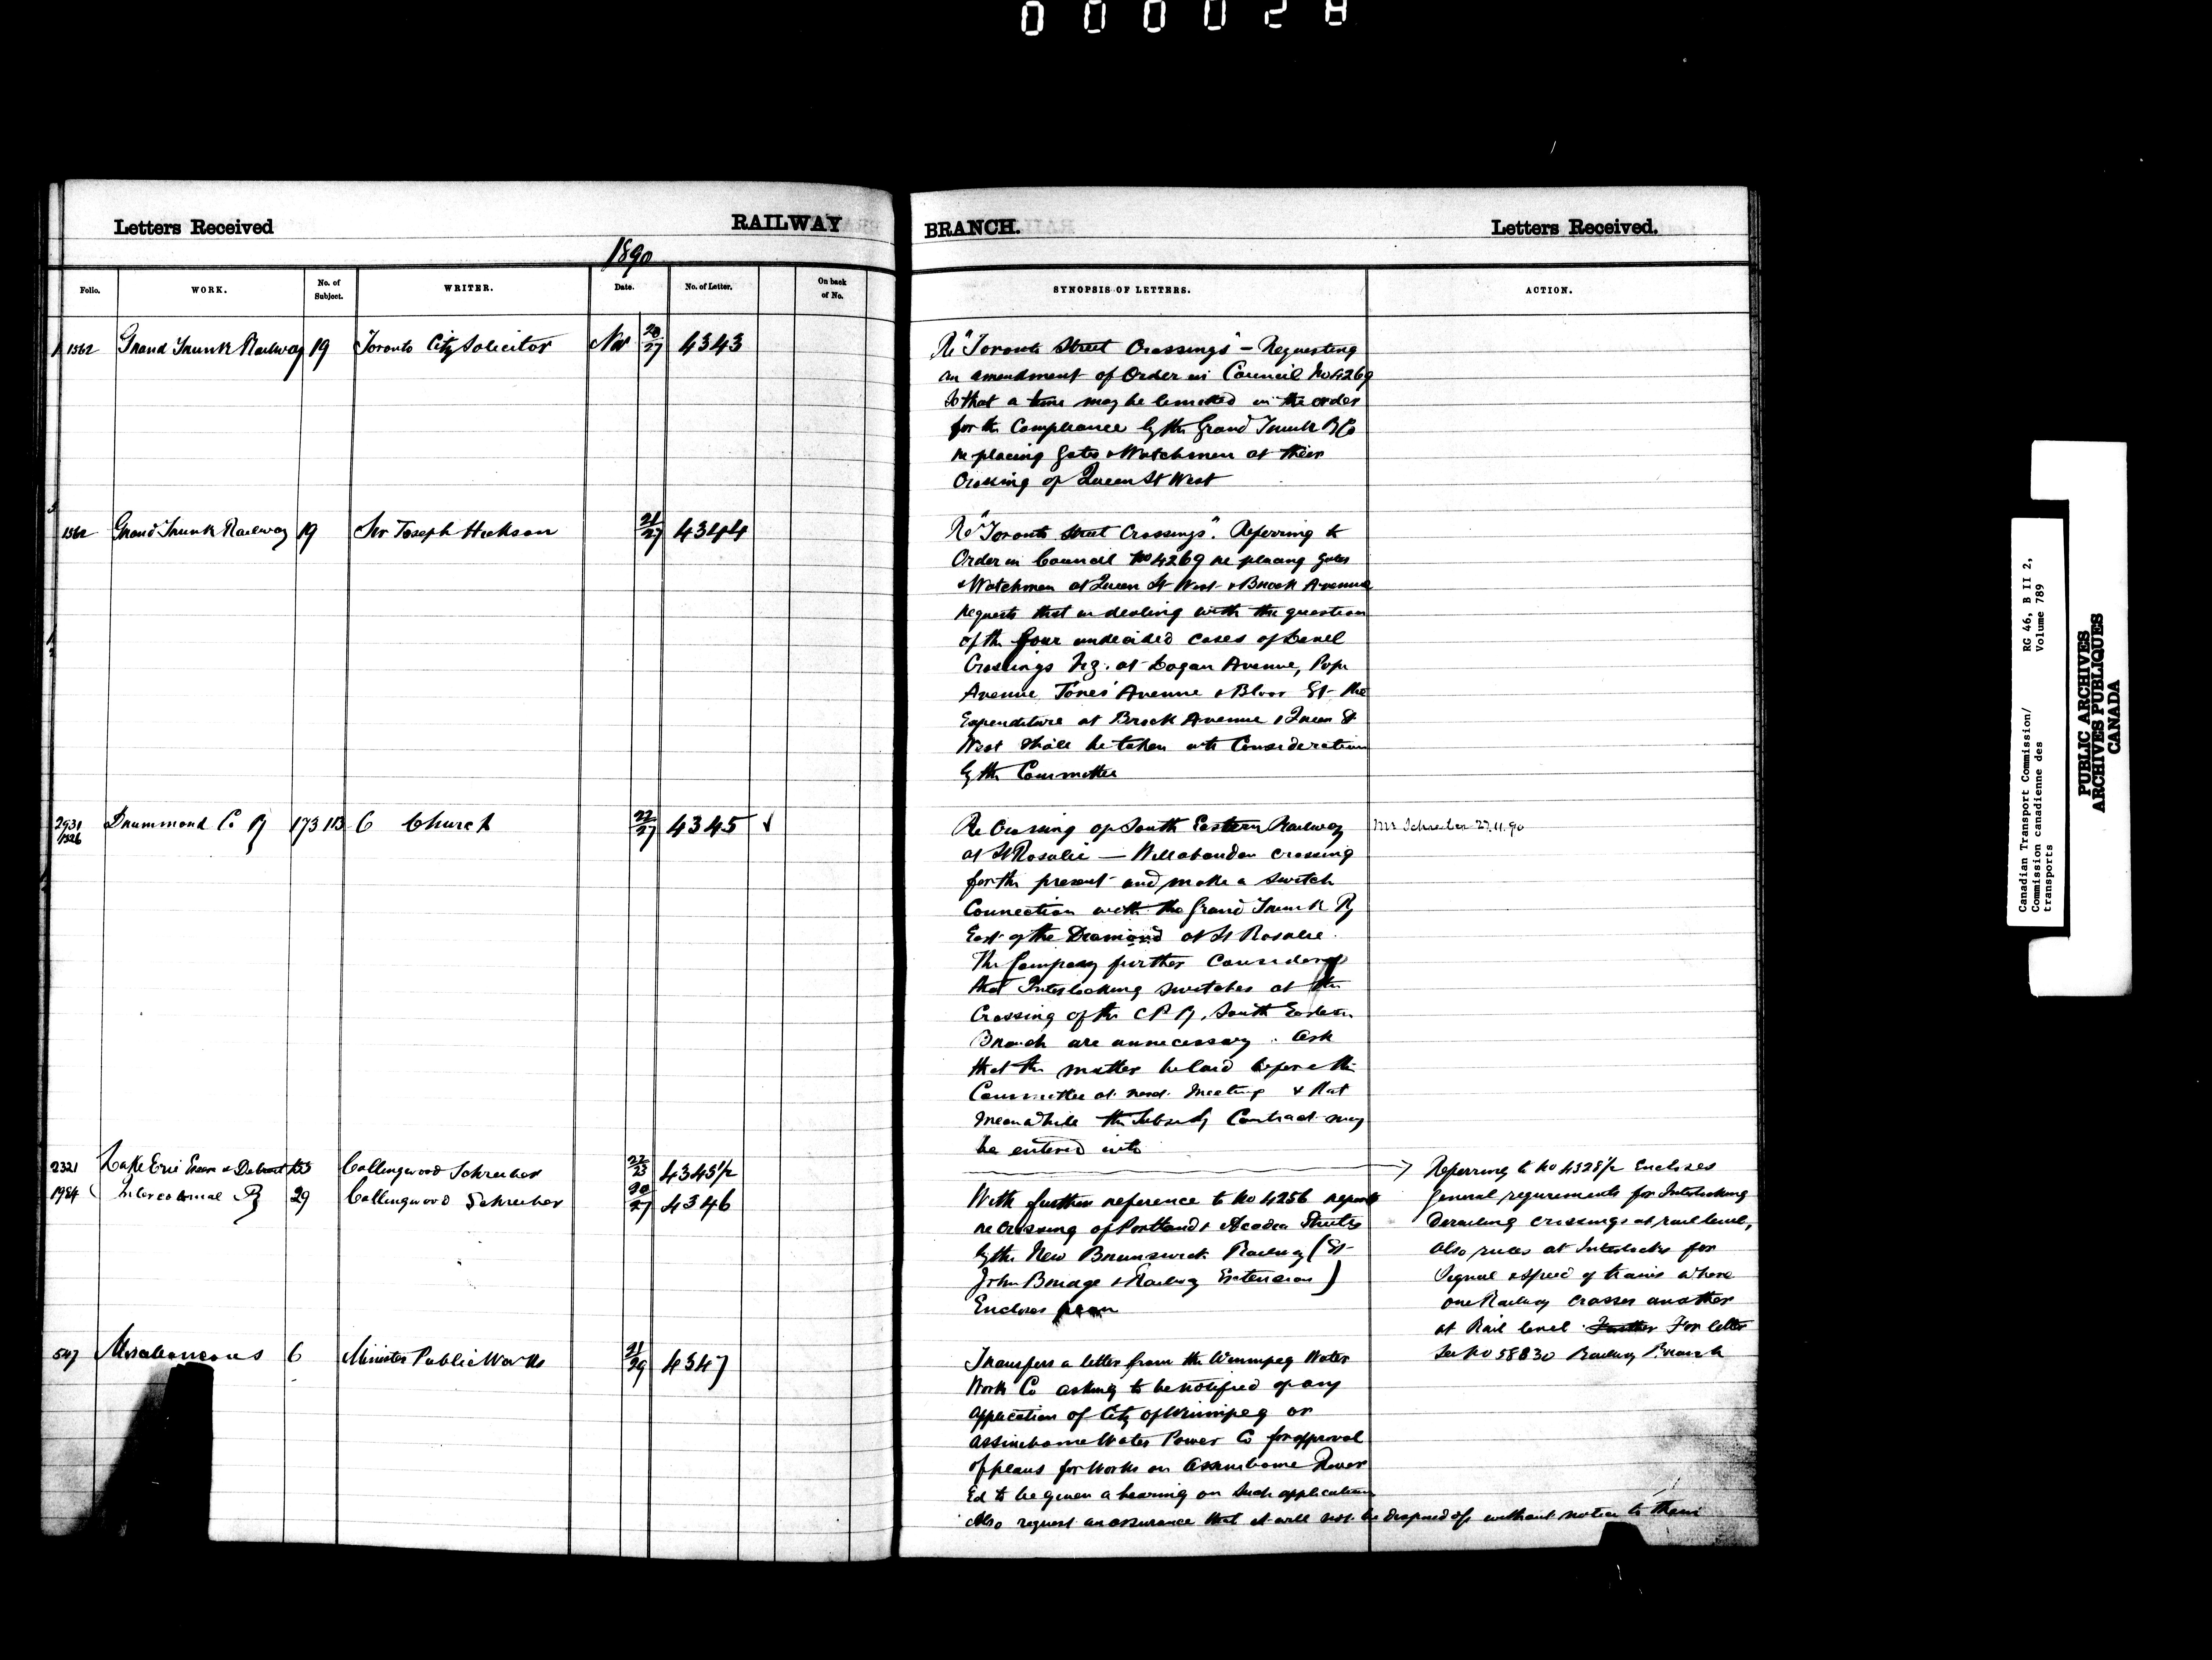 000028
Letters Received
RAILWAY
BRANCH.
Letters Received.
1890
Folio.
WORK.
No. of Subject.
WRITER.
Date.
No. of Letter.
On back of No.
SYNOPSIS OF LETTERS.
ACTION.
1562 Grand Trunk Railway 19 Toronto City Solicitor Nov 20/27 4343
Re "Toronto Street Crossings" - Requesting
an amendment of Order in Council No 4269
So that a time may be limited in the order
for the Compliance by the Grand Trunk R Co
re placing Gates & Watchmen at their
Crossing of Queen St West
1562 Grand Trunk Railway 19 Sir Joseph Hickson 21/27 4344
Re "Toronto Street Crossings". Referring to
Order in Council No 4269 re placing gates
& Watchmen at Queen St West & Brock Avenue
requests that in dealing with the question
of the four undecided cases of Level
Crossings viz. at Logan Avenue, Pape
Avenue Jones' Avenue & Bloor St the
Expenditure at Brock Avenue & Queen St
West shall be taken into Consideration
by the Committee
2931/1526 Drummond Co Ry 173 113 C Church 22/27 4345 ✓
Re Crossing of South Eastern Railway
at St Rosalie — Will abandon crossing
for the present and make a switch
Connection with the Grand Trunk Ry
East of the Diamond at St Rosalie.
The Company further Considers
that Interlocking switches at the
Crossing of the C P Ry. South Eastern
Branch are unnecessary. Ask
that the matter be laid before the
Committee at next meeting & that
meanwhile the Subsidy Contract may
be entered into
Mr Schreiber 27.11.90
2321 Lake Erie Essex & Detroit Collingwood Schreiber 22/23 4345 1/2
Referring to No 4328 1/2 Encloses
General requirements for Interlocking
Derailing crossings at rail level,
also rules at Interlocks for
Signal & speed of trains where
one Railway Crosses another
at Rail level. Further For letter
See No 58830 Railway Branch
1984 Intercolonial Ry 29 Collingwood Schreiber 20/27 4346
With further reference to No 4256 reports
re Crossing of Portland & Acadia Streets
by the New Brunswick Railway (St
John Bridge & Railway Extension)
Encloses plan
547 Miscellaneous 6 Minister Public Works 21/29 4347
Transfers a letter from the Winnipeg Water
Work Co asking to be notified of any
application of City of Winnipeg or
Assiniboine Water Power Co for approval
of plans for Works on Assiniboine River
& to be given a hearing on such application
Also request an assurance that it will not be disposed of without notice to them
Canadian Transport Commission/
Commission canadienne des
transports
RG 46, B II 2,
Volume 789
PUBLIC ARCHIVES
ARCHIVES PUBLIQUES
CANADA